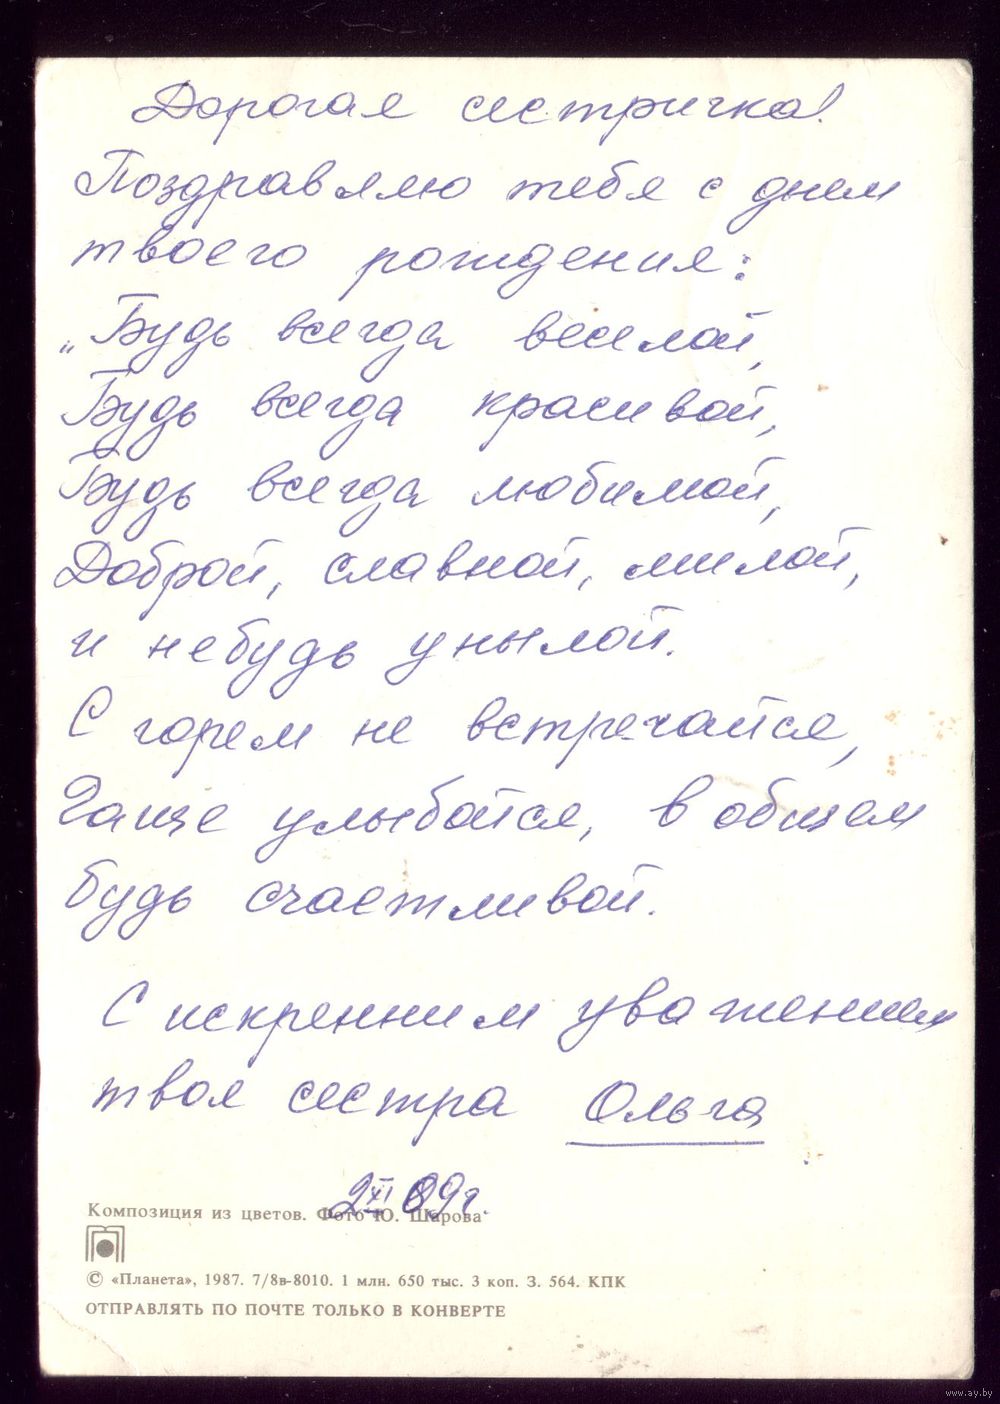 Дорогая сестричка!
Поздравляю тебя с днем
твоего рождения:
„Будь всегда веселой,
Будь всегда красивой,
Будь всегда любимой,
Доброй, славной, милой,
и небудь унылой.
С горем не встречайся,
Чаще улыбайся, в общем
будь счастливой.
С искренним уважением
твоя сестра Ольга
2 XI 89г.
Композиция из цветов. Фото Ю. Шарова
© «Планета», 1987. 7/8в-8010. 1 млн. 650 тыс. 3 коп. З. 564. КПК
ОТПРАВЛЯТЬ ПО ПОЧТЕ ТОЛЬКО В КОНВЕРТЕ
www.ay.by